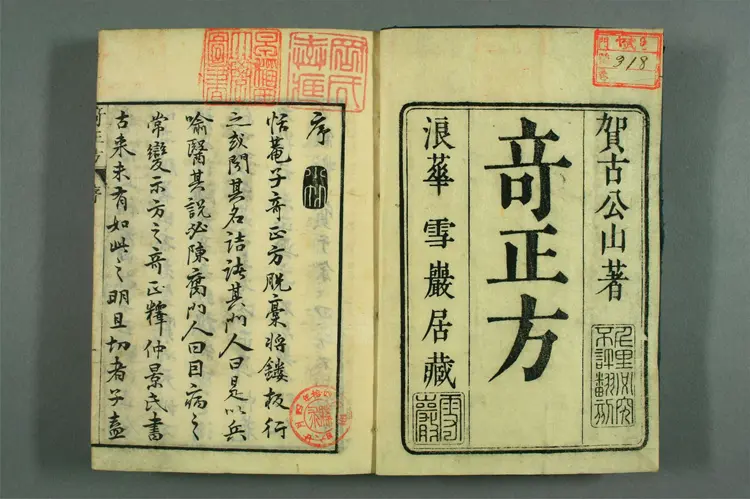 賀古公山著
竒正方
浪華 雪巖居藏
318
序
恬菴子竒正方脱稾将鏤板行
之或問其名詰諸其門人曰是以兵
喻醫其説必陳腐門人曰曰病之
常變示方之竒正釋仲景氏書
古来未有如此之明且切者子盍
竒正方 序